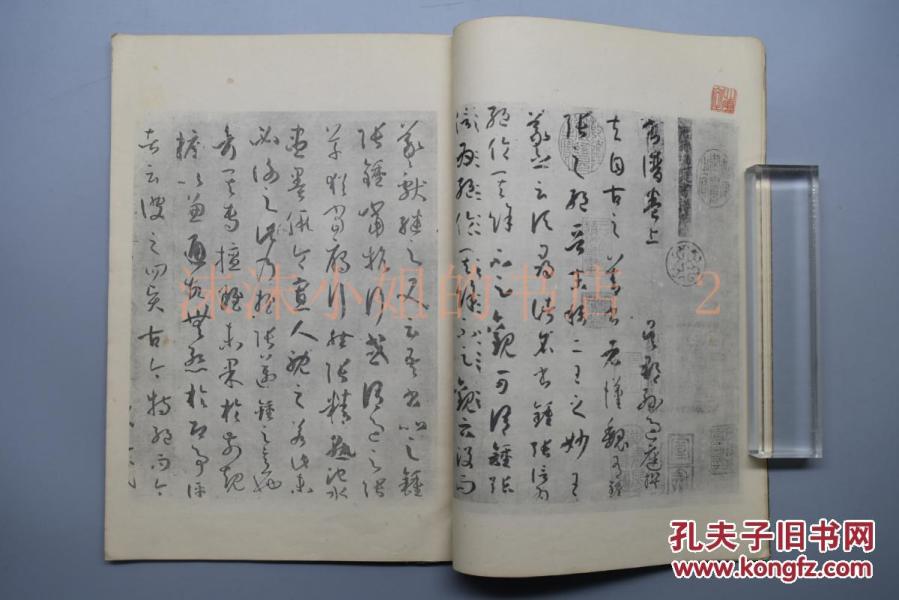 書譜卷上 吳郡孫過庭撰
夫自古之善書者漢魏有鍾
張之絕晉末稱二王之妙王
羲之云頃尋諸名書鍾張信為
絕倫其餘不足觀可謂鍾張
云沒而
羲獻繼之又云吾書比之鍾
張鍾當抗行或謂過之張
草猶當鴈行然張精熟池水
盡墨假令寡人耽之若此未
必謝之此乃推張邁鍾之意也
考其專擅雖未果於前規
摭以兼通故無慚於即事評
者云彼之四賢古今特絕而今
沫沫小姐的书店 2
孔夫子旧书网
www.kongfz.com